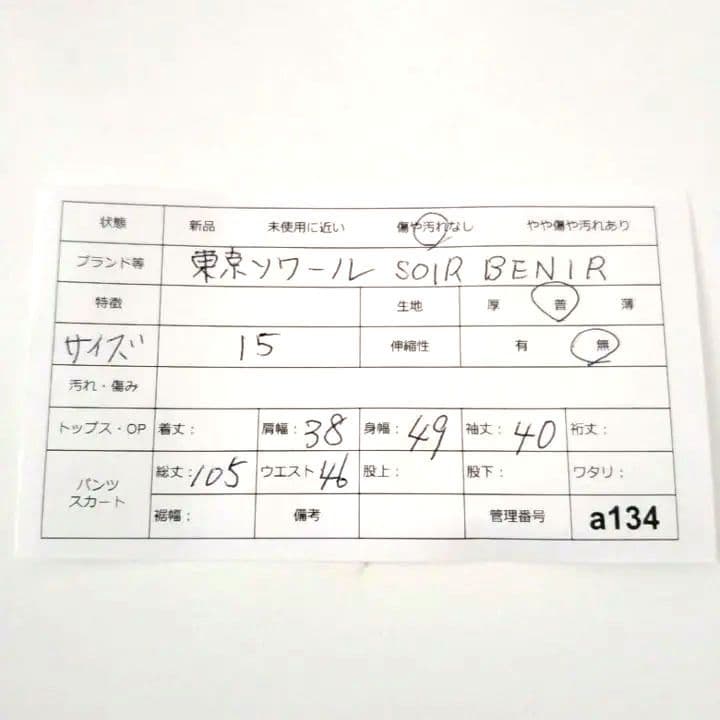 状態 新品 未使用に近い 傷や汚れなし やや傷や汚れあり
ブランド等 東京ソワール SOIR BENIR
特徴 生地 厚 普 薄
サイズ 15 伸縮性 有 無
汚れ・傷み
トップス・OP 着丈: 肩幅:38 身幅:49 袖丈:40 裄丈:
パンツ スカート 総丈:105 ウエスト46 股上: 股下: ワタリ:
裾幅: 備考 管理番号 a134